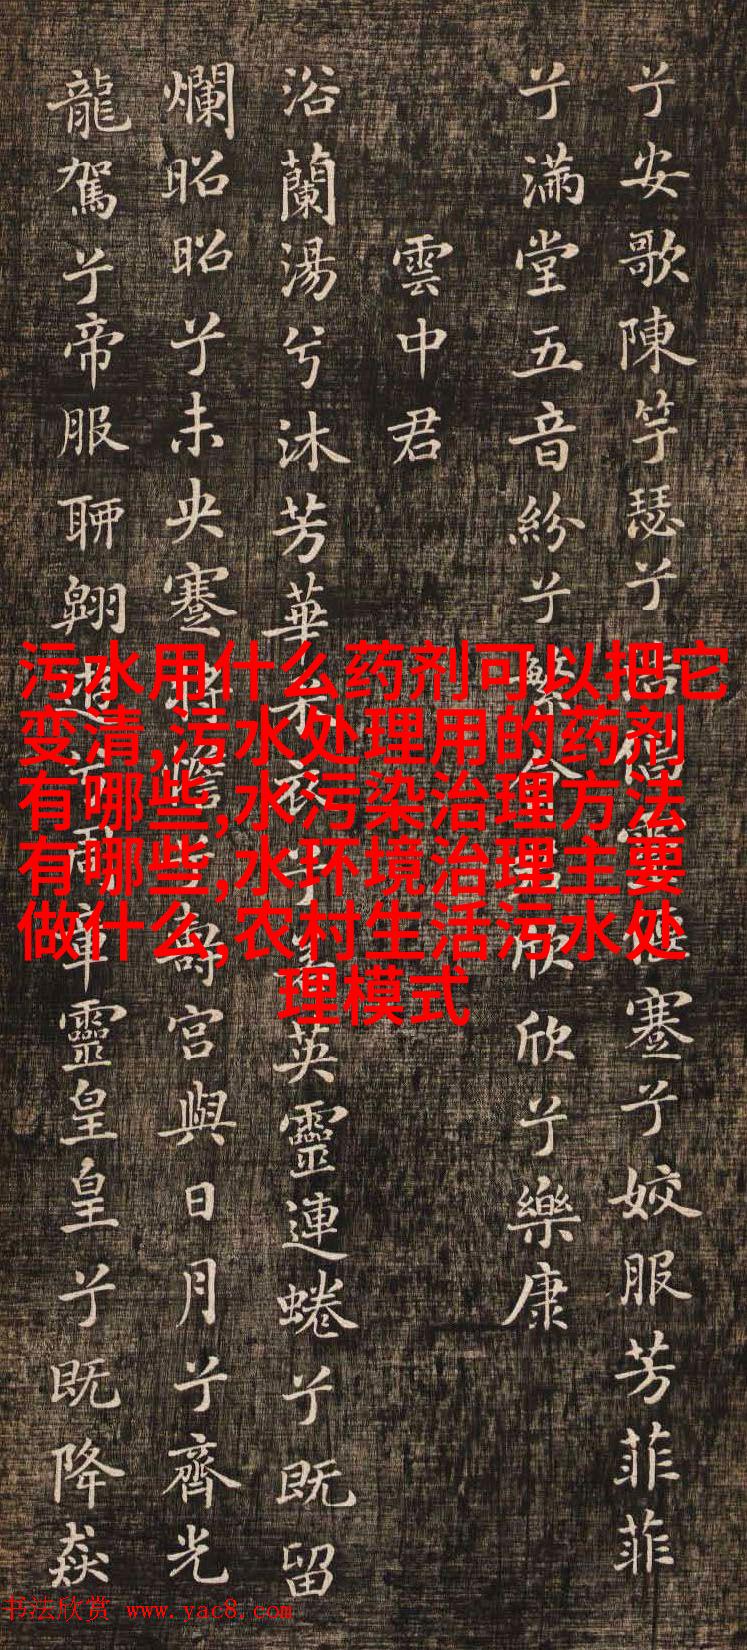 兮安歌陳竽瑟兮浩倡靈偃蹇兮姣服芳菲菲
兮滿堂五音紛兮繁會君欣欣兮樂康
雲中君
浴蘭湯兮沐芳華采衣兮若英靈連蜷兮既留
爛昭昭兮未央蹇將憺兮壽宮與日月兮齊光
龍駕兮帝服聊翱遊兮周章靈皇皇兮既降猋
污水用什么药剂可以把它
变清,污水处理用的药剂
有哪些,水污染治理方法
有哪些,水环境治理主要
做什么,农村生活污水处
理模式
书法欣赏 www.yac8.com